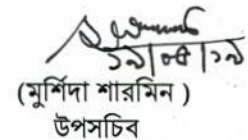 ১৯|০৫|১৯
(মুর্শিদা শারমিন )
উপসচিব